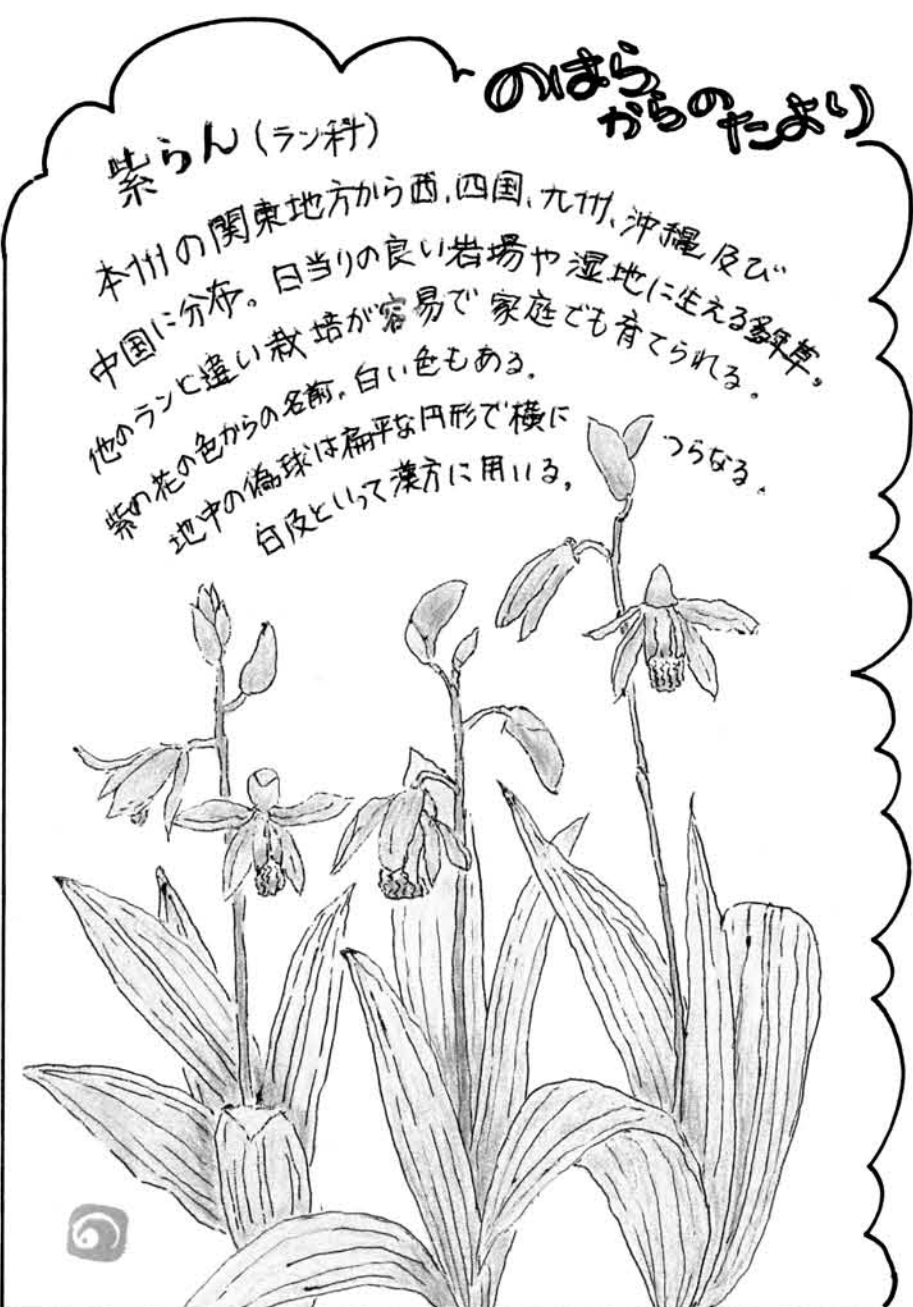 のはら
からの
たより
紫らん（ラン科）
本州の関東地方から西、四国、九州、沖縄及び
中国に分布。日当りの良い岩場や湿地に生える多年草。
他のランと違い栽培が容易で家庭でも育てられる。
紫の花の色からの名前。白い色もある。
地中の偽球は扁平な円形で横につらなる。
白及といって漢方に用いる。